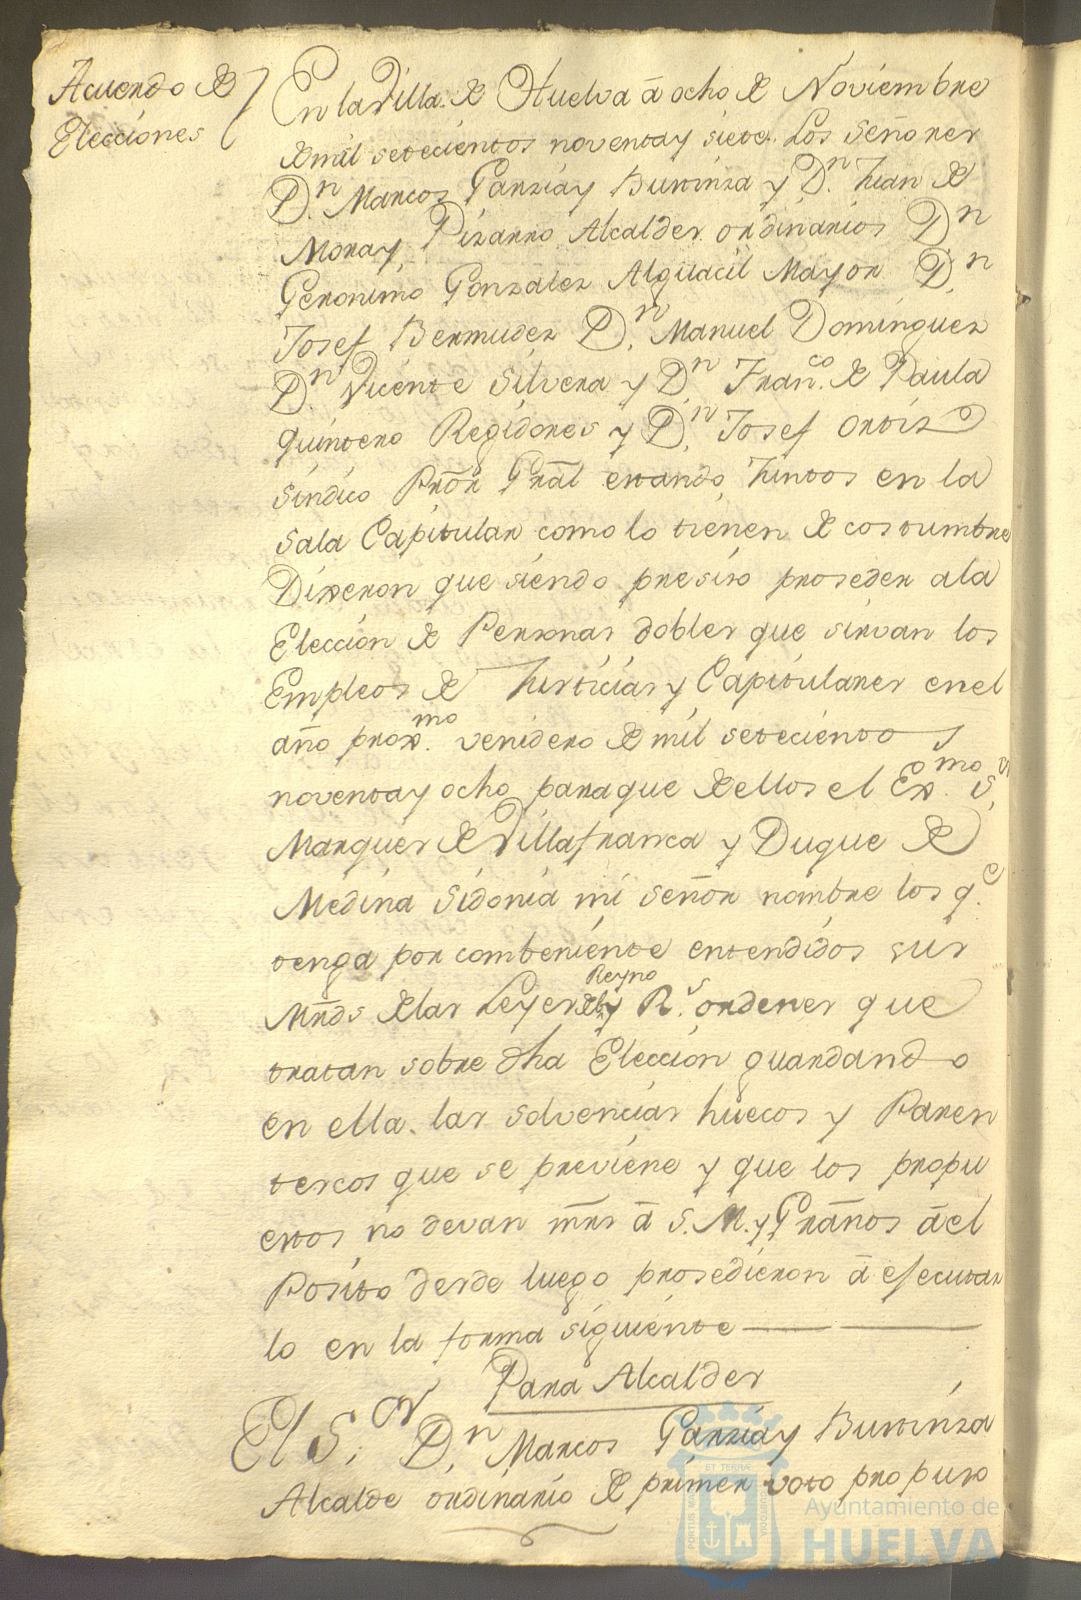 Acuerdo de
Elecciones
En la Villa de Huelva â ocho de Noviembre
de mil setecientos noventa y siete. Los Señores
Dn. Marcos Garzia y Burrinza y Dn. Juan de
Mora y Pizarro Alcaldes ordinarios Dn
Geronimo Gonzalez Alguacil Mayor Dn.
Josef Bermudez Dn. Manuel Dominguez
Dn. Vicente Silvera y Dn. Franco. de Paula
quintero Regidores y Dn. Josef Ortiz
Sindico Prōr Grāl estando Juntos en la
Sala Capitular como lo tienen de costumbre
Dixeron que siendo presiso proseder a la
Eleccion de Personas dobles que sirvan los
Empleos de Justicias y Capitulares en el
año proxmo. venidero de mil setecientos
noventa y ocho para que de ellos el Exmo. Sr.
Marques de Villafranca y Duque de
Medina Sidonia mi señor nombre los qe.
tenga por combeniente entendidos sus
Mrds de las Leyes del Reyno y Rs. ordenes que
tratan sobre dha Eleccion guardando
en ella las solvencias huecos y Paren
tescos que se previene y que los propu
estos no devan mrs â S. M. y Granos âel
Posito desde luego prosedieron â ejecutar
lo en la forma siguiente
Para Alcaldes
El Sor. Dn. Marcos Garzia y Burrinza
Alcalde ordinario de primer voto propuso
Ayuntamiento de
HUELVA